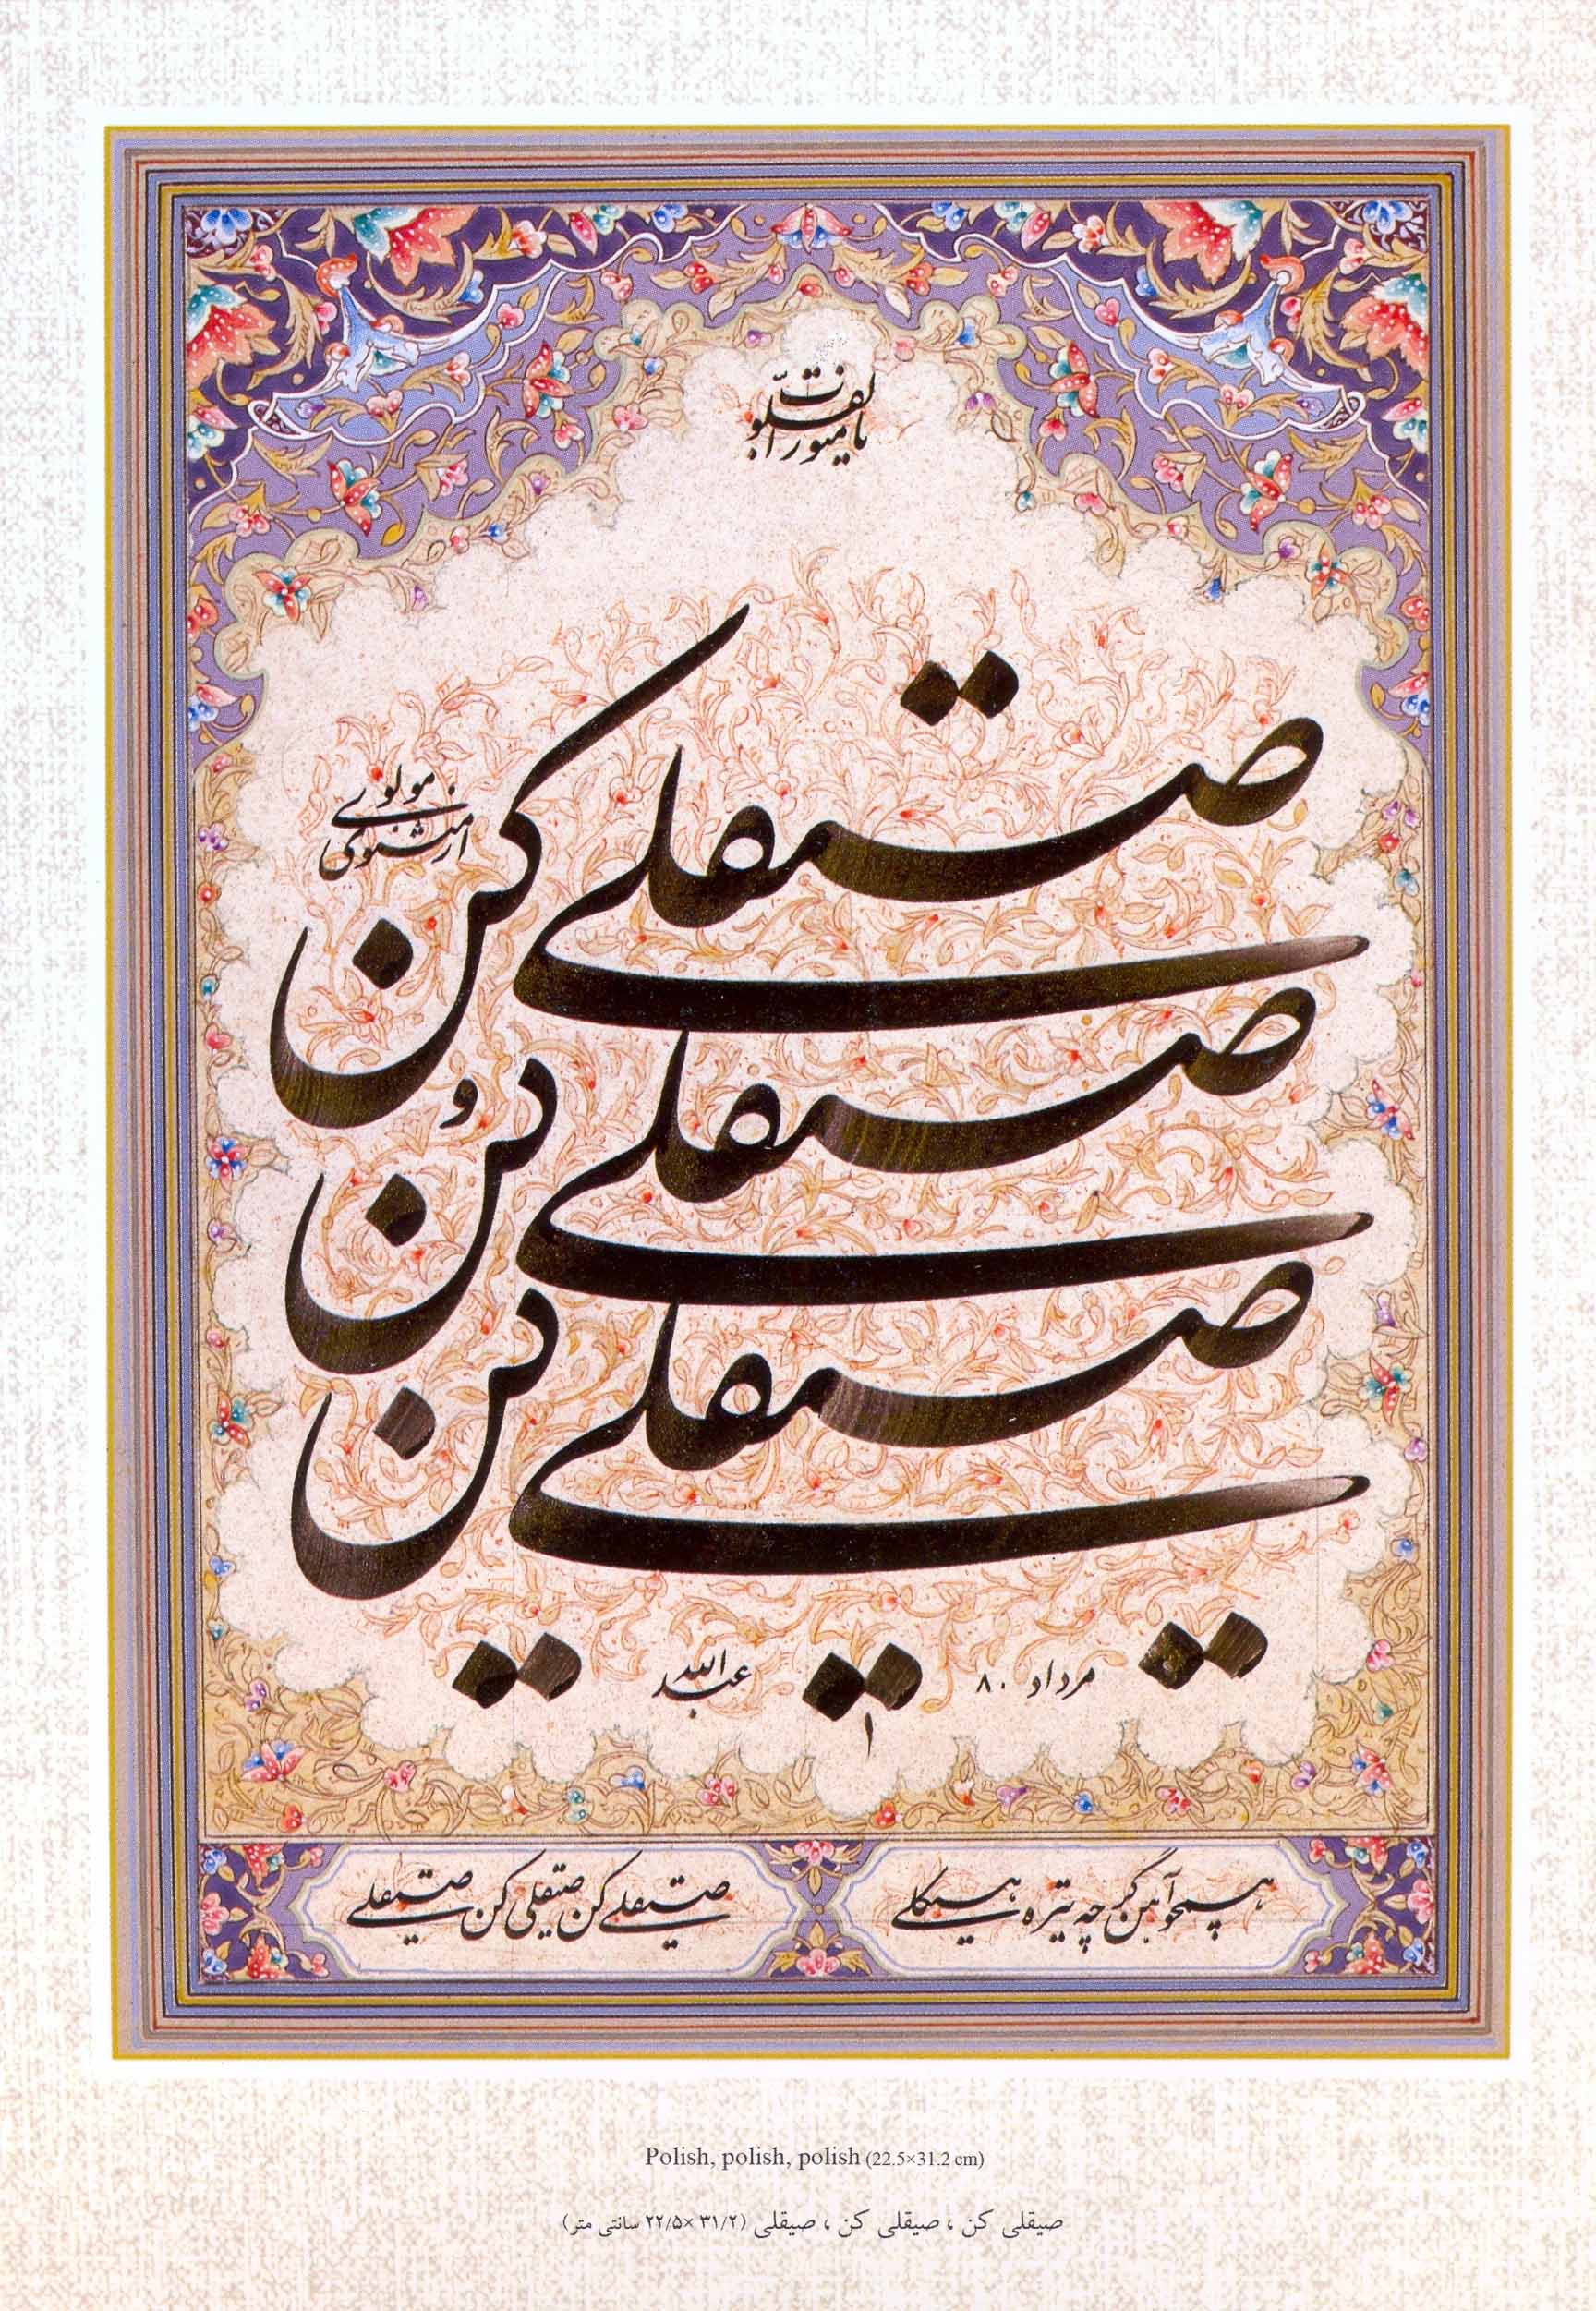 یا منور القلوب
صیقلی کن
از مثنوی مولوی
صیقلی کن
و
صیقلی کن
مرداد ۸۰
عبدالله
همچو آهن گر چه تیره هیکلی
صیقلی کن صیقلی کن صیقلی
Polish, polish, polish (22.5×31.2 cm)
صیقلی کن ، صیقلی کن ، صیقلی (۳۱/۲ ×۲۲/۵ سانتی متر)